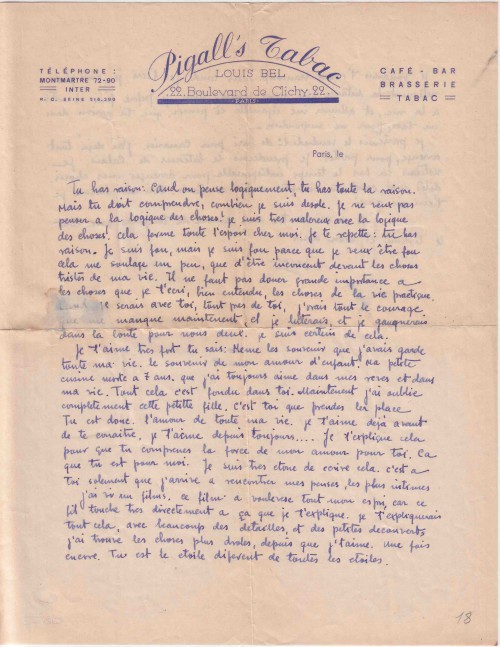 TÉLÉPHONE :
MONTMARTRE 72-90
INTER
Pigall's Tabac
LOUIS BEL
22 Boulevard de Clichy 22
PARIS
CAFÉ - BAR
BRASSERIE
TABAC
Paris, le
Tu has raison: Cand on pense logiquement, tu has toute la raison.
Mais tu doit comprendre, combien je suis desole. Je ne veux pas
penser a la logique des choses! je suis tres malereux avec la logique
des choses! cela forme toute l'espoir cher moi. Je te repette: tu has
raison. Je suis fou, mais je suis fou parce que je veux être fou
cela me soulage un peu, que d'être inconient devant les choses
tristes de ma vie. Il ne faut pas doner grande importance a
les choses que je t'ecri, bien entendu, les choses de la vie practique.
je serais avec toi, tout pres de toi, j'vrais tout le courage
manque maintenent, et je luterais, et je gaugnerais
dans la loute pour nous deux. je suis certein de cela.
Je t'aime tres fort tu sais: Meme les souvenir que j'avais garde
toute ma vie. le souvenir de mon amour d'enfant. Ma petite
cusine morte a 7 ans. que j'ai toujours aime dans mes reves et dans
ma vie. Tout cela c'est fondu dans toi. Maintenent j'ai oublie
completement cette petite fille. c'est toi que prendes les place
Tu est donc. l'amour de toute ma vie. je t'aime deja avant
de te conaitre, je t'aeme depuis toujours.... Je t'explique cela
pour que tu comprenes la force de mon amour pour toi. Ca
que tu est pour moi. Je suis tres etone de ecrire cela. c'est a
toi solement que j'arrive a rencontrer mes penses, les plus intimes
j'ai vu un films. ce film a voulverse tout mon espri, car ce
fil touche tres directement a ça que je t'explique. je t'expliquerais
tout cela, avec beaucoup des detailles, et des petites decouverts
j'ai trouve les choses plus droles, depuis que j't'aime. Une fois
encorre. Tu est le etoile diferent de toutes les etoiles.
18